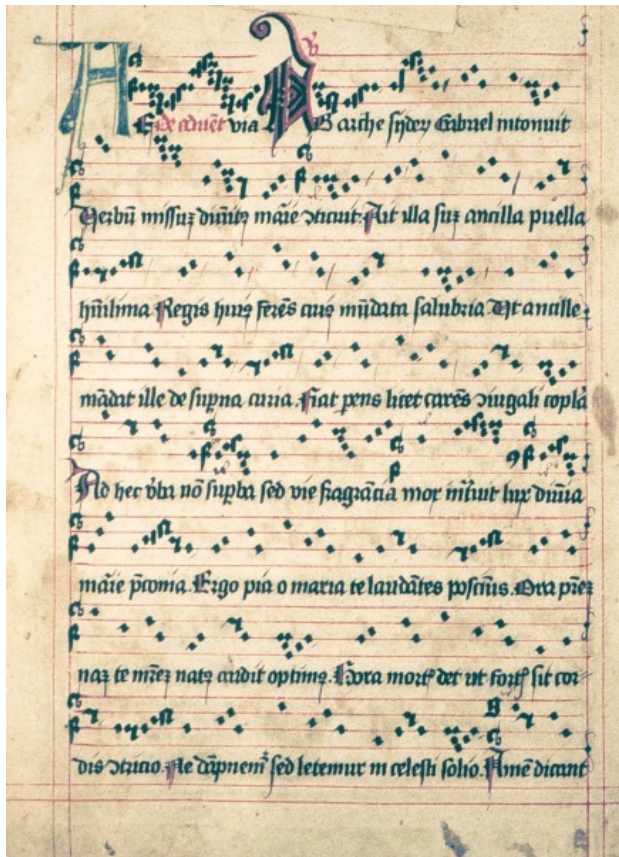 A De aduēt via AB arche syderꝫ Gabriel intonuit
Uerbū missuꝫ diuinitꝫ maīe ↄticuit. Ait illa suꝫ ancilla puella
humilima Regis huiꝰ ferēs cuiꝰ mūdata salubria Vt ancille
mādat ille de supna curia. Fiat pens licet carēs ↄiugali copla
Ad hec vba nō supba sed vie fragrācia mox intuit lux diuīa
maīe pconia. Ergo pia o maria te laudātes poscimꝰ. Ora prēꝫ
naꝫ te mrēꝫ natꝰ audit optimꝰ. Hora mortꝭ det ut fortꝭ sit cor-
dis ↄtricio. Ne dāpnemꝰ sed letemur in celesti solio. Amē dicant